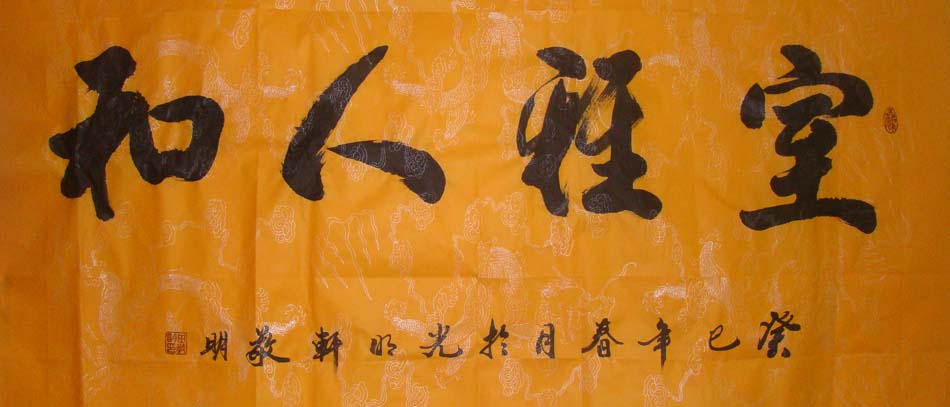 室雅人和
癸巳年春月於光明軒敬明